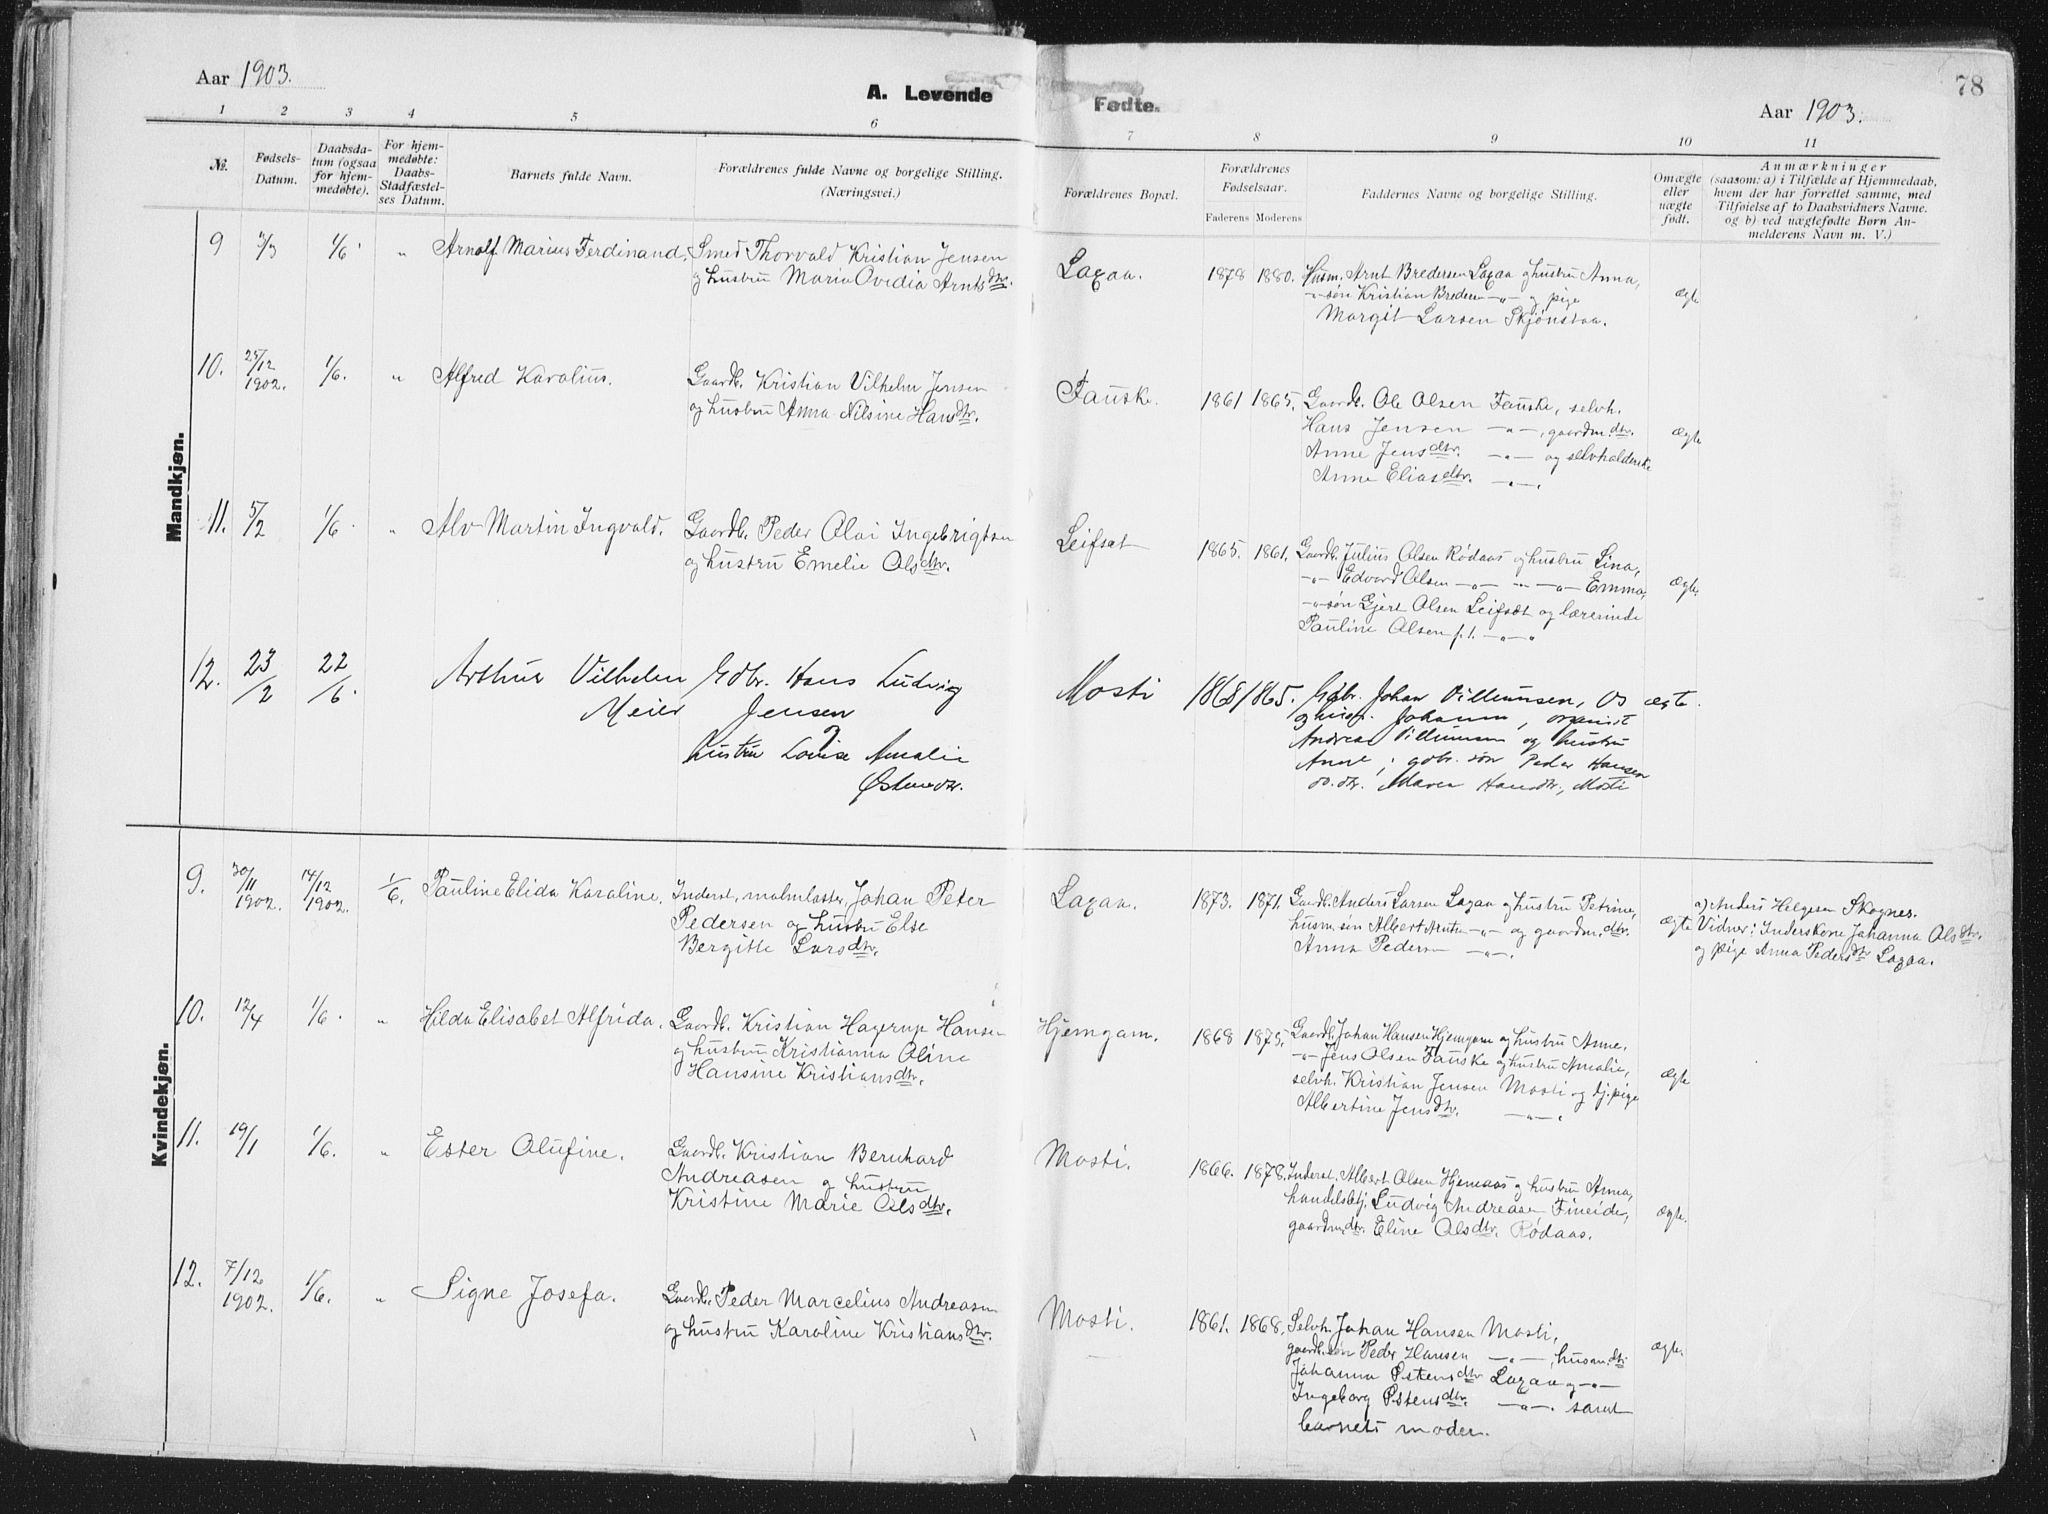 Aar 1903.
A. Levende Fødte.
78
Aar 1903.
1 2 3 4 5 6 7 8 9 10 11
№.
Fødsels-Datum.
Daabsdatum (ogsaa for hjemmedøbte).
For hjemmedøbte: Daabs-Stadfæstelses Datum.
Barnets fulde Navn.
Forældrenes fulde Navne og borgelige Stilling. (Næringsvei.)
Forældrenes Bopæl.
Forældrenes Fødselsaar.
Faderens Moderens
Faddernes Navne og borgelige Stilling.
Omægte eller uægte født.
Anmærkninger
(saasom: a) i Tilfælde af Hjemmedaab,
hvem der har forrettet samme, med
Tilføielse af to Daabsvidners Navne.
og b) ved uægtefødte Børn An-
melderens Navn m. V.)
Mandkjøn.
9 1/6. " Arnolf Marius Ferdinand. Smed Thorvald Kristian Jensen
og hustru Maria Ovidia Arntsdtr.
Laxaa. 1878 1880. Husm. Arnt Bredesen Laxaa og hustru Anna,
-"- søn Kristian Bredesen -"- og pige
Margit Larsen Skjønstaa.
ægte
10. 25/12 1902. 1/6. " Alfred Karolius. Gaardb. Kristian Vilhelm Jensen
og hustru Anna Nilsine Hansdtr.
Fauske. 1861 1865. Gaardb. Ole Olsen Fauske, selvh.
Hans Jensen -"-, gaardm.dtr.
Anne Jensdtr. -"- og selvholderske
Anne Eliasdtr. -"-.
ægte
11. 5/2 1/6. " Alv Martin Ingvald. Gaardb. Peder Olai Ingebrigtsen
og hustru Emelie Olsdtr.
Leifset 1865. 1861. Gaardb. Julius Olsen Rødaas og hustru Lina,
-"- Edvard Olsen -"- -"- -"- Emma,
-"- søn Gjert Olsen Leifset og lærerinde
Pauline Olsen f.t. -"-
ægte.
12. 23/2 22/6. Arthur Vilhelm
Meier
Gdbr. Hans Ludvig
Jensen og
hustru Lovise Amalie
Østensdtr.
Mosti 1868 1865. Gdbr. Johan Villumsen, Os
og hustr. Johanna, organist
Andreas Villumsen og hustru
Anne; gdbr. søn Peder Hansen
do. dtr. Maren Hansdtr., Mosti
ægte.
Kvindekjøn.
9. 30/11 1902. 14/12 1902. 1/6. Pauline Elida Karoline. Inderst, malmlaster, Johan Peter
Pedersen og hustru Else
Bergitte Larsdtr.
Laxaa. 1873. 1871. Gaardb. Anders Larsen Laxaa og hustru Petrine,
husm. søn Albert Arntsen -"- og gaardm. dtr.
Anna Pedersen -"-.
ægte
a) Anders Helgesen Skognes.
Vidner: Inderskone Johanna Olsdtr.
og pige Anna Pedersdtr Laxaa.
10. 12/4 1/6. " Hilda Elisabet Alfrida. Gaardb. Kristian Hagerup Hansen
og hustru Kristianna Oline
Hansine Kristiansdtr.
Hjemgam. 1868 1875. Gaardb. Johan Hansen Hjemgam og hustru Anne,
-"- Jens Olsen Fauske og hustru Amalie,
selvh. Kristian Jensen Mosti og tj.pige
Albertine Jensdtr. -"-.
ægte
11. 19/1 1/6. " Ester Olufine. Gaardb. Kristian Bernhard
Andreasen og hustru
Kristine Marie Olsdtr.
Mosti. 1866. 1878. Inderst. Albert Olsen Hjemaas og hustru Anna,
handelsbtj. Ludvig Andreasen Fineide,
gaardm.dtr. Eline Olsdtr. Rødaas.
ægte.
12. 7/12 1902. 1/6. " Signe Josefa. Gaardb. Peder Marcelius Andreasen
og hustru Karoline Kristiansdtr.
Mosti. 1861. 1868. Selvh. Johan Hansen Mosti,
gaardb.søn Peder Hansen -"-, husm. dtr.
Johanna Østensdtr Laxaa og -"-
Ingeborg Østensdtr. -"-. samt
barnets moder.
ægte.